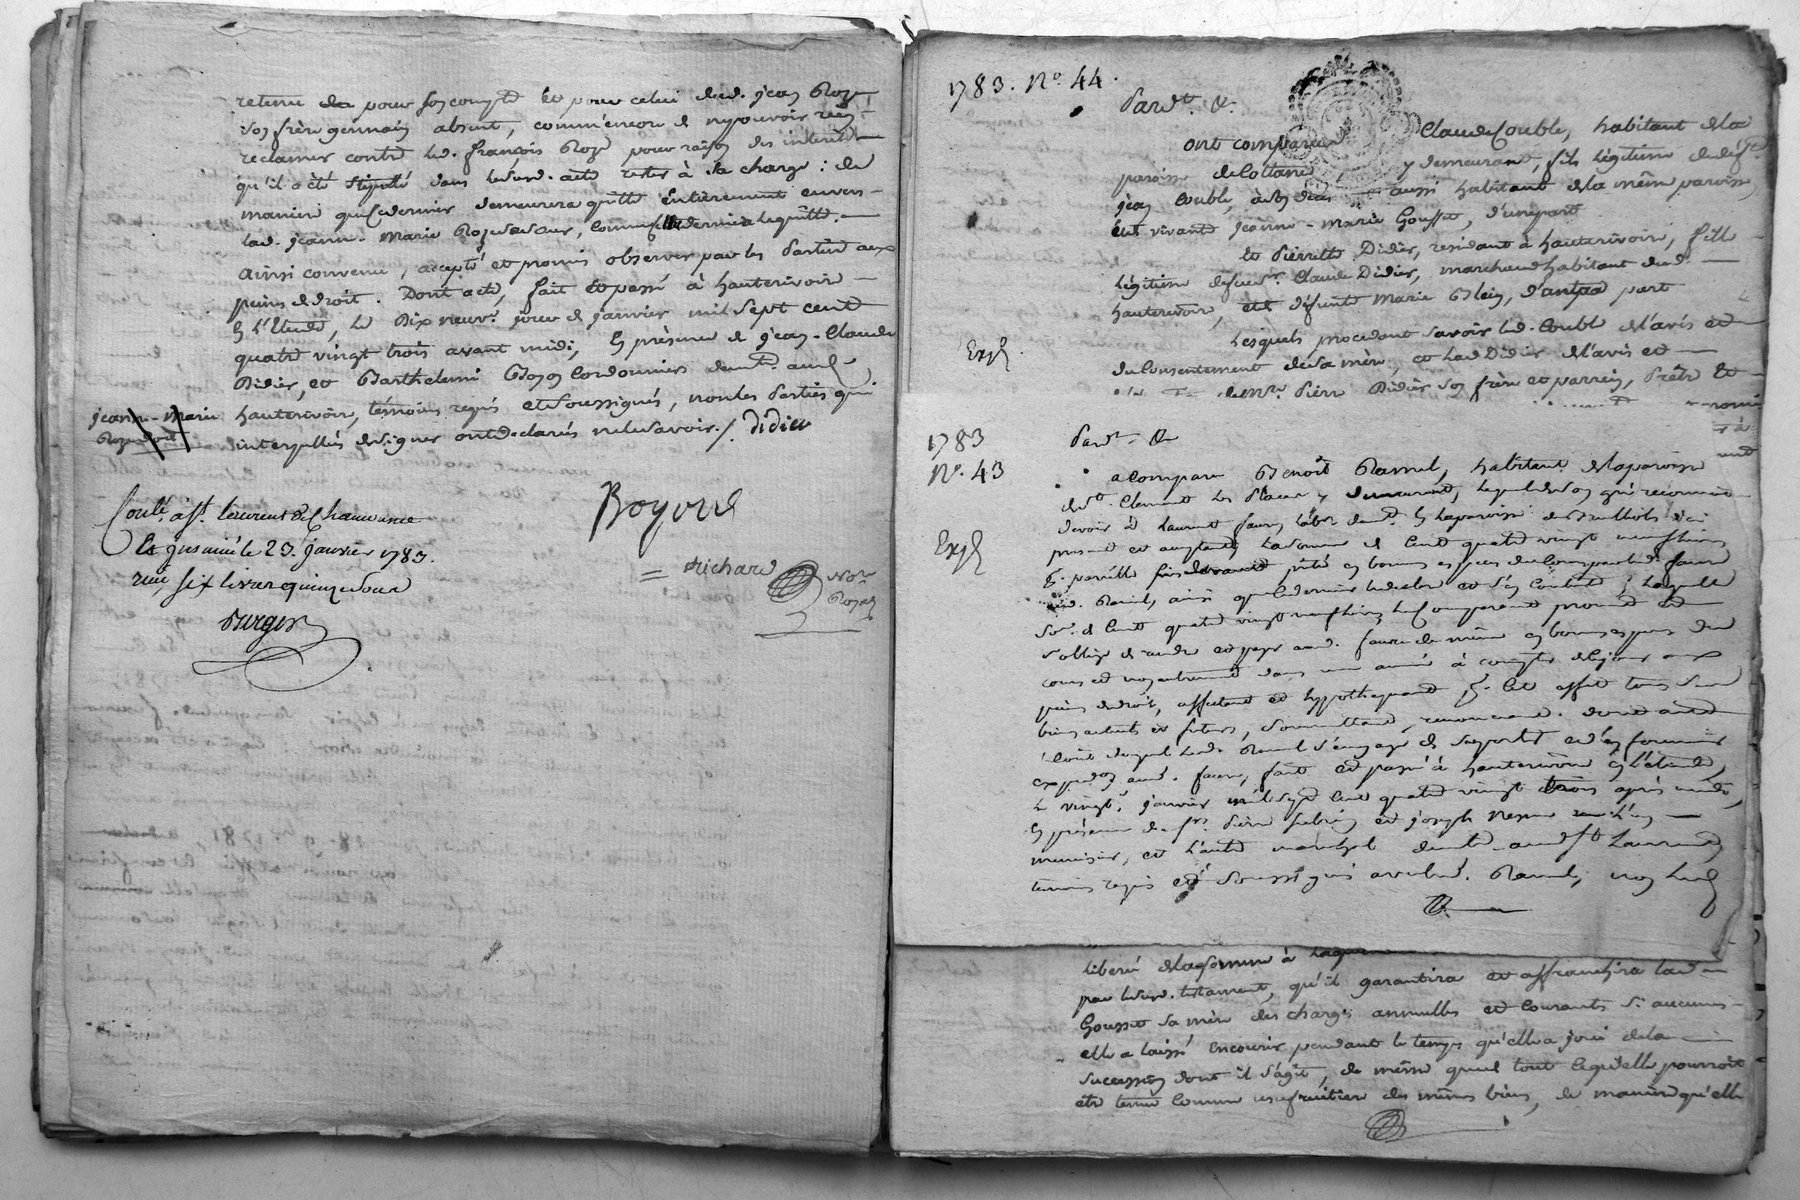 retenu de pour son compte et pour celui dud. jean Roze
son frère germain absent, comm'encore de ny pouvoir rien
reclamer contre led. françois Roze pour raison des interets
qu'il a été stipulé dans led acte rester à sa charge : de
maniere que ce dernier demeurera quitte entierement envers
lad. jeanne-marie Roze sa sœur, comme ce dernier la quitte.
Ainsi convenu, accepté et promis observer par les parties aux
peines de droit. Dont acte, fait et passé à hauterivoire
en l'Etude, le Dix neuv.e jour de janvier mil sept cent
quatre vingt trois avant midi, en présence de jean-Claude
Didier, et Barthelemi Cordonniers demt. aud.
hauterivoire, témoins requis et soussignés, non les parties qui
jeanne-marie
de ce interpellés de signer ont declaré ne le savoir ./. Didier
Boyord
Richard Not.re Royal
Conlé à st. Laurent de Chamousset
et insinué le 23. janvier 1783.
reçu six livres quinze sous
1783. N.o 44.
Pard.t &
ont comparu Claude Couble, habitant de la
paroisse de Cottance y demeurant, fils légitime de déft.
jean Couble, aussi habitant de la même paroisse,
et de vivante jeanne-marie Gousset, d'une part
et Pierrette Didier, residant à hauterivoire, fille
légitime de sieur. Claude Didier, marchand habitant dud.
hauterivoire, et de défunte Marie Blein, d'autre part
Lesquels procedant savoir led. Couble de l'avis et
du consentement de sa mère, et lad Didier de l'avis et
de Mre. Pierre Didier son frère et parrein, Prêtre &
Exp.
1783
N.o 43
Pard.t &
Exp.
a comparu Benoit Ramel, habitant de la paroisse
de St. Clement les Places y demeurant, lequel de son gré reconnoit
devoir à Laurent faure labr. demt. en la paroisse de
present et acceptant la somme de Cent quatre vingt neuf livres
p. pareille prêté en bonnes especes du Cours par led. faure
aud. Ramel, ainsi que ce dernier le declare et s'en contente ; laquelle
som. de Cent quatre vingt neuf livres le Comparant promet et
s'oblige de rendre et payer aud. faure de même en bonnes especes du
cours et non autrement dans une année à compter de ce jour aux
peines de droit, affectant et hypothequant p. cet effet tous ses
biens actuels et futurs, soumettant, renonceant. dont acte
duquel led. Ramel s'engage de supporter et d'en fournir
expedon aud. faure, fait et passé à hauterivoire en l'étude,
le vingt. janvier mil sept cent quatre vingt trois après midi,
en présence de srs. Pierre et joseph l'un
menuisier, et l'autre marechal demt. aud St Laurent
temoins requis et soussignés avec led. Ramel, non led
liberé de la somme à laquelle
par led testament, qu'il garantira et affranchira lad
Gousset sa mère des charges annuelles et courants si aucunes
elle a laissé encourir pendant le temps qu'elle a joui de la
succession dont il s'agit, de même que de tout ce qu'elle pourroit
être tenue comme usufruitiere des mêmes biens, de maniere qu'elle